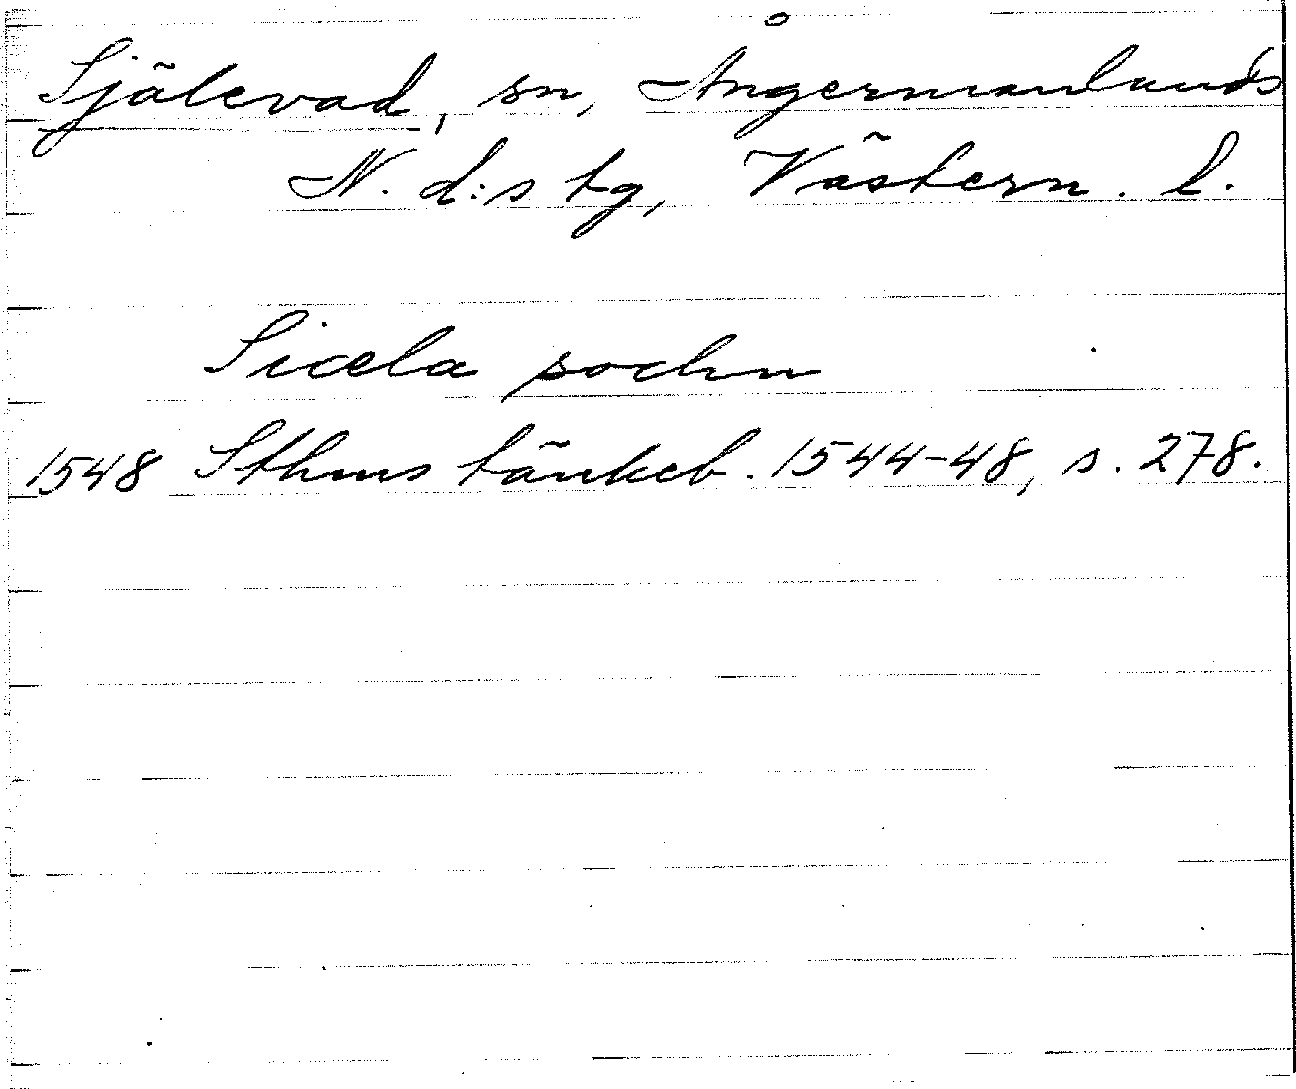 Själevad, sn, Ångermanlands
N. d:s tg, Västern. l.
Siæla sochn
1548 Sthms tänkeb. 1544-48, s. 278.